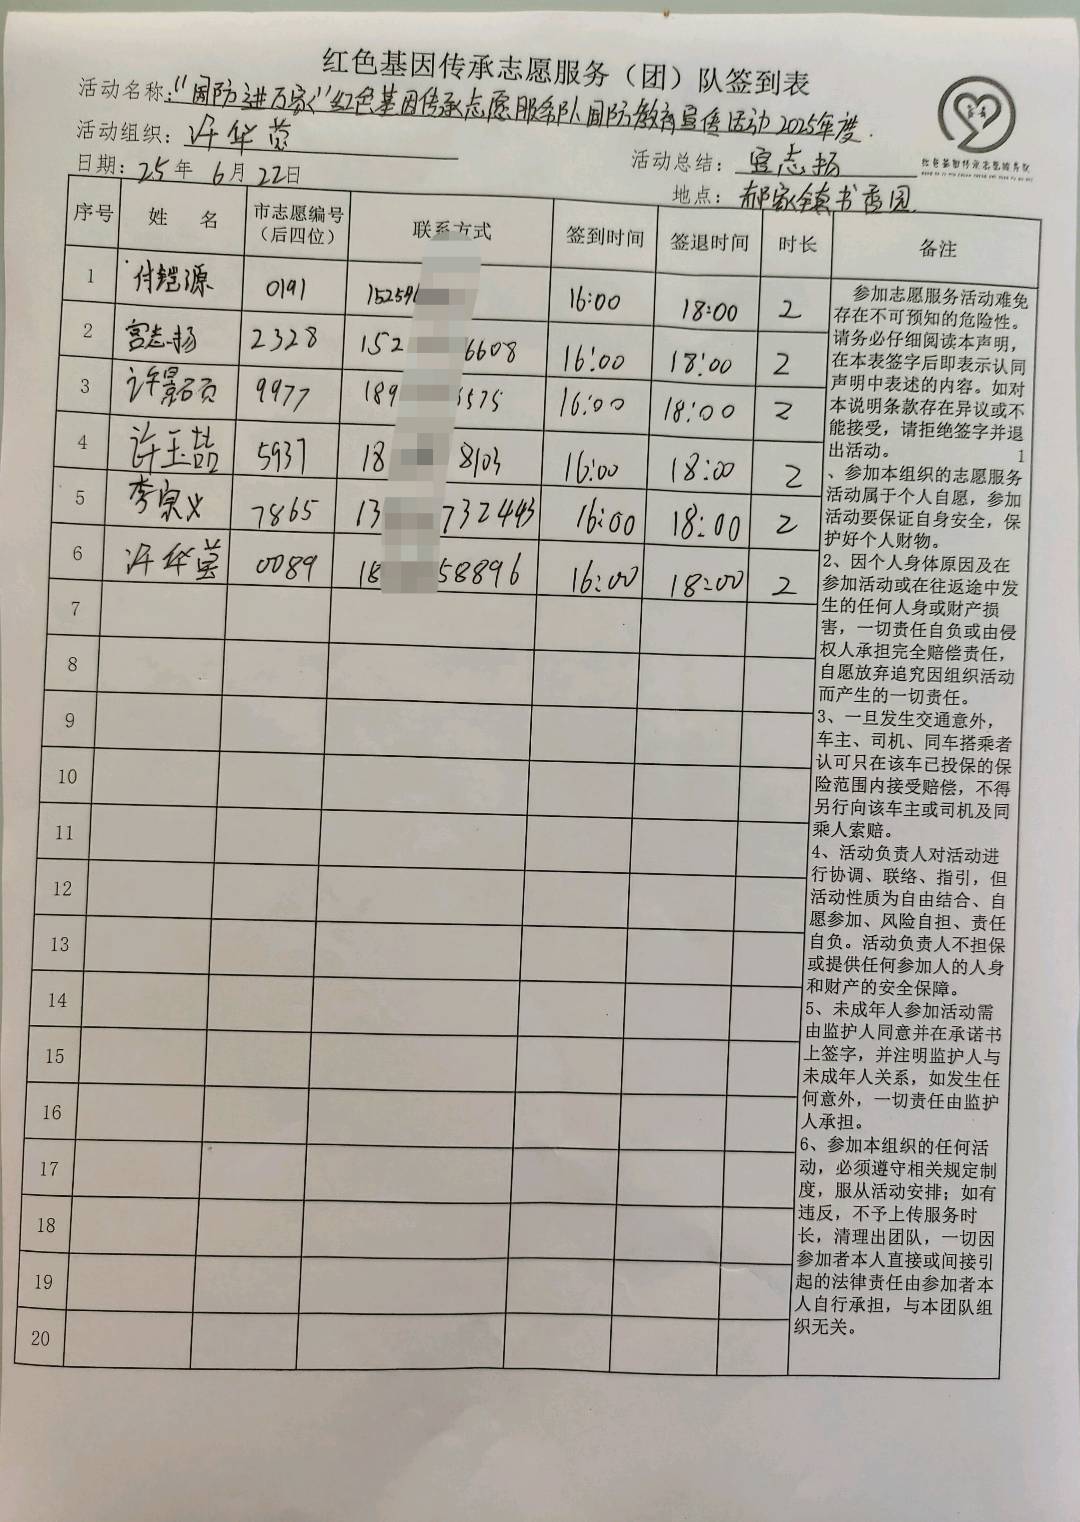 红色基因传承志愿服务（团）队签到表
活动名称："国防进万家"红色基因传承志愿服务队国防教育宣传活动2025年度.
活动组织：许华莹
活动总结：宫志扬
日期：25年6月22日
地点：郝家镇书香园
红色基因传承志愿服务队
序号 姓 名 市志愿编号（后四位） 联系方式 签到时间 签退时间 时长 备注
1 付铠源 0191 15259 16:00 18:00 2
2 宫志扬 2328 152 6608 16:00 18:00 2
3 许景硕 9977 189 5575 16:00 18:00 2
4 许玉喆 5937 18 8103 16:00 18:00 2
5 李泉义 7865 13 732443 16:00 18:00 2
6 许华莹 0089 18 58896 16:00 18:00 2
7
8
9
10
11
12
13
14
15
16
17
18
19
20
参加志愿服务活动难免
存在不可预知的危险性。
请务必仔细阅读本声明，
在本表签字后即表示认同
声明中表述的内容。如对
本说明条款存在异议或不
能接受，请拒绝签字并退
出活动。 1
、参加本组织的志愿服务
活动属于个人自愿，参加
活动要保证自身安全，保
护好个人财物。
2、因个人身体原因及在
参加活动或在往返途中发
生的任何人身或财产损
害，一切责任自负或由侵
权人承担完全赔偿责任，
自愿放弃追究因组织活动
而产生的一切责任。
3、一旦发生交通意外，
车主、司机、同车搭乘者
认可只在该车已投保的保
险范围内接受赔偿，不得
另行向该车主或司机及同
乘人索赔。
4、活动负责人对活动进
行协调、联络、指引，但
活动性质为自由结合、自
愿参加、风险自担、责任
自负。活动负责人不担保
或提供任何参加人的人身
和财产的安全保障。
5、未成年人参加活动需
由监护人同意并在承诺书
上签字，并注明监护人与
未成年人关系，如发生任
何意外，一切责任由监护
人承担。
6、参加本组织的任何活
动，必须遵守相关规定制
度，服从活动安排；如有
违反，不予上传服务时
长，清理出团队，一切因
参加者本人直接或间接引
起的法律责任由参加者本
人自行承担，与本团队组
织无关。